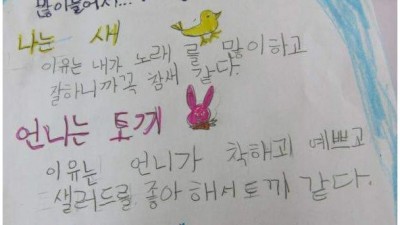 많이들어서...
나는 새
이유는 내가 노래를 많이하고
잘하니까꼭 참새 같다.
언니는 토끼
이유는 언니가 착해고 예쁘고
샐러드를 좋아해서토끼 같다.